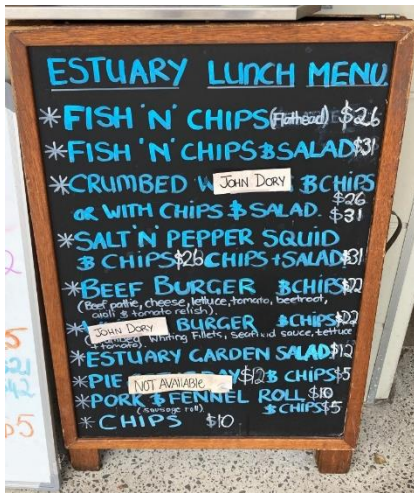 ESTUARY LUNCH MENU
*FISH 'N' CHIPS (Flathead) $26
*FISH 'N' CHIPS & SALAD $31
*CRUMBED W JOHN DORY & CHIPS $26
OR WITH CHIPS & SALAD. $31
*SALT 'N' PEPPER SQUID
& CHIPS $26 CHIPS + SALAD $31
*BEEF BURGER & CHIPS $22
(Beef pattie, cheese, lettuce, tomato, beetroot,
aioli & tomato relish).
* JOHN DORY BURGER & CHIPS $22
Whiting Fillets, seafood sauce, lettuce
+ tomato)
*ESTUARY GARDEN SALAD $12
*PIE NOT AVAILABLE DAY $12 & CHIPS $5
*PORK & FENNEL ROLL $10
(sausage roll) & CHIPS $5
*CHIPS $10